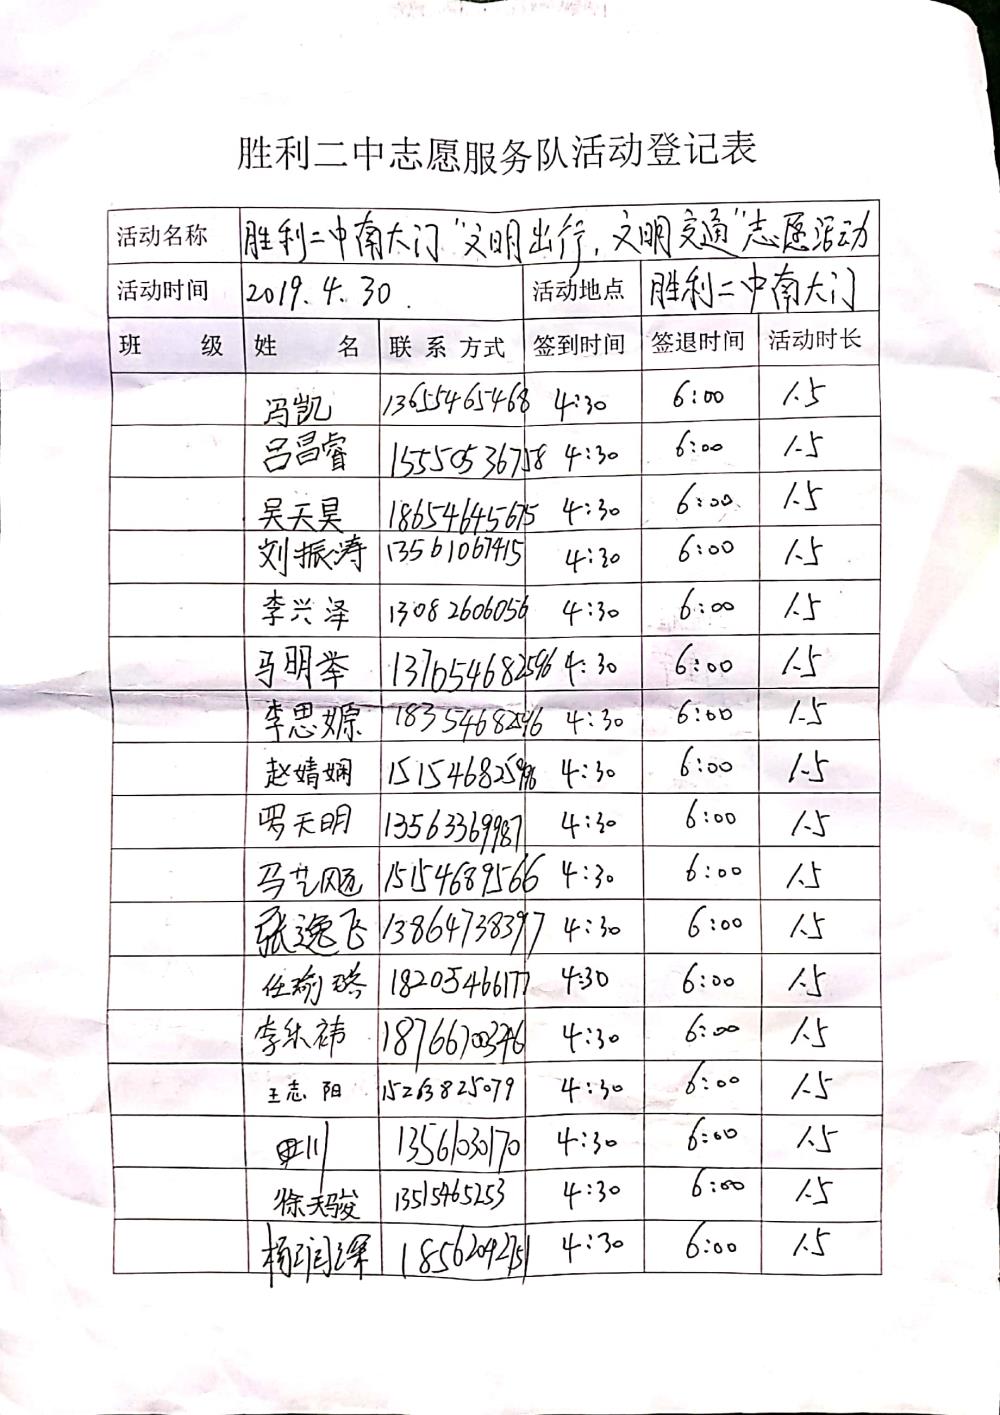 胜利二中志愿服务队活动登记表
活动名称 胜利二中南大门“文明出行,文明交通”志愿活动
活动时间 2019.4.30. 活动地点 胜利二中南大门
班 级 姓 名 联系方式 签到时间 签退时间 活动时长
冯凯 13655465468 4:30 6:00 1.5
吕昌睿 15550536758 4:30 6:00 1.5
吴天昊 18654645675 4:30 6:00 1.5
刘振涛 13561067415 4:30 6:00 1.5
李兴泽 13082606056 4:30 6:00 1.5
马明举 137654682596 4:30 6:00 1.5
李思嫄 4:30 6:00 1.5
赵婧娴 4:30 6:00 1.5
罗天明 13563369987 4:30 6:00 1.5
马艺飏 15154689566 4:30 6:00 1.5
张逸飞 13864738397 4:30 6:00 1.5
任瑜璐 18205466177 4:30 6:00 1.5
李乐祎 18766700346 4:30 6:00 1.5
王志阳 15263825079 4:30 6:00 1.5
川 13561030170 4:30 6:00 1.5
徐天骏 13515465253 4:30 6:00 1.5
杨润深 18562042751 4:30 6:00 1.5